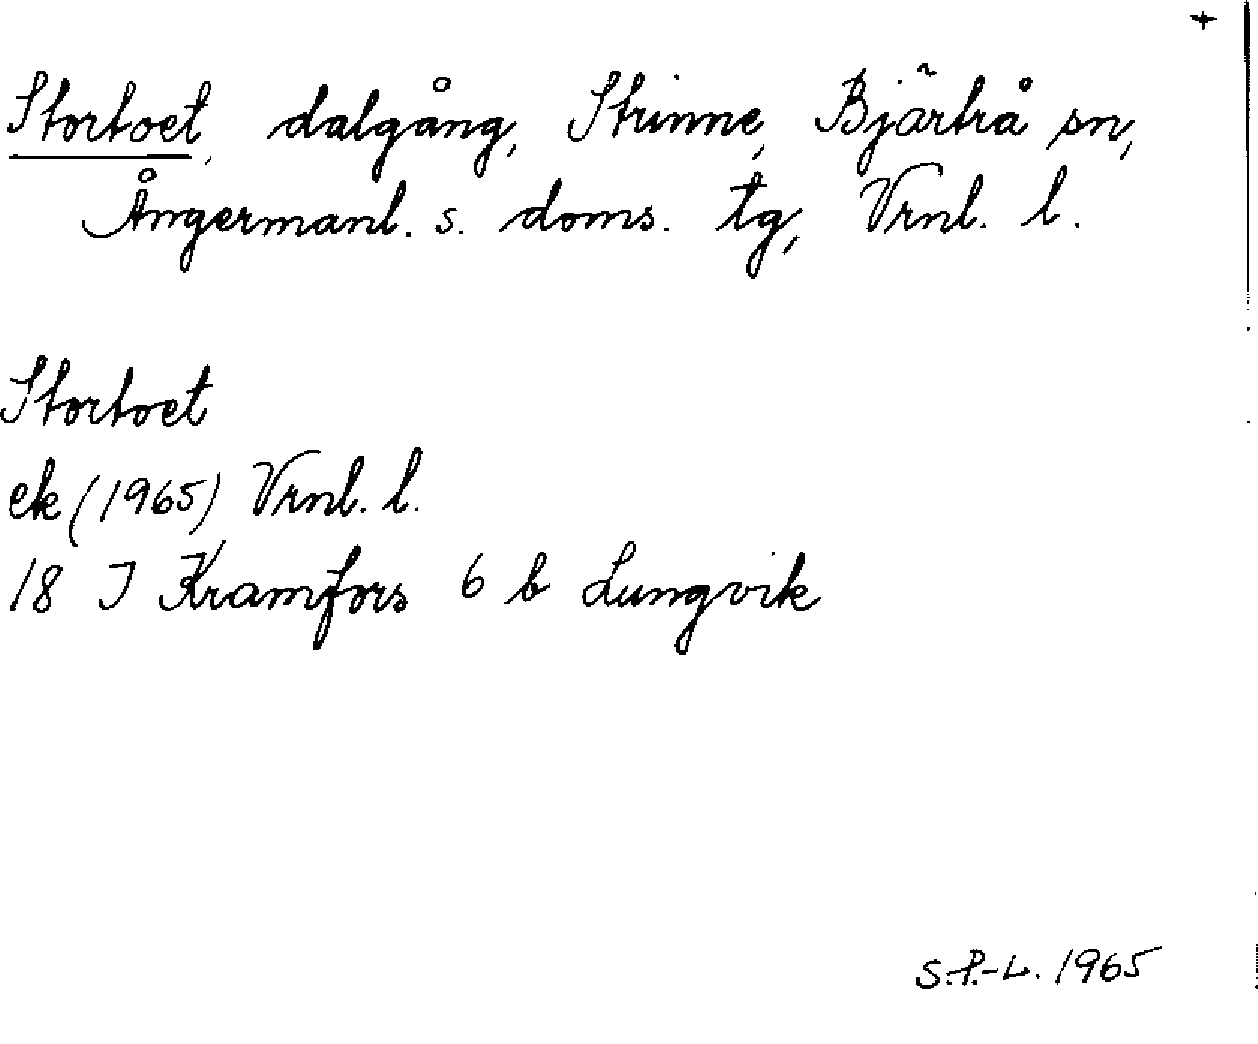 +
Stortoet, dalgång, Strinne, Bjärtrå sn,
Ångermanl. s. doms. tg, Vrnl. l.
Stortoet
ek (1965) Vrnl. l.
18 J Kramfors 6 b Lungvik
S.P.-L. 1965